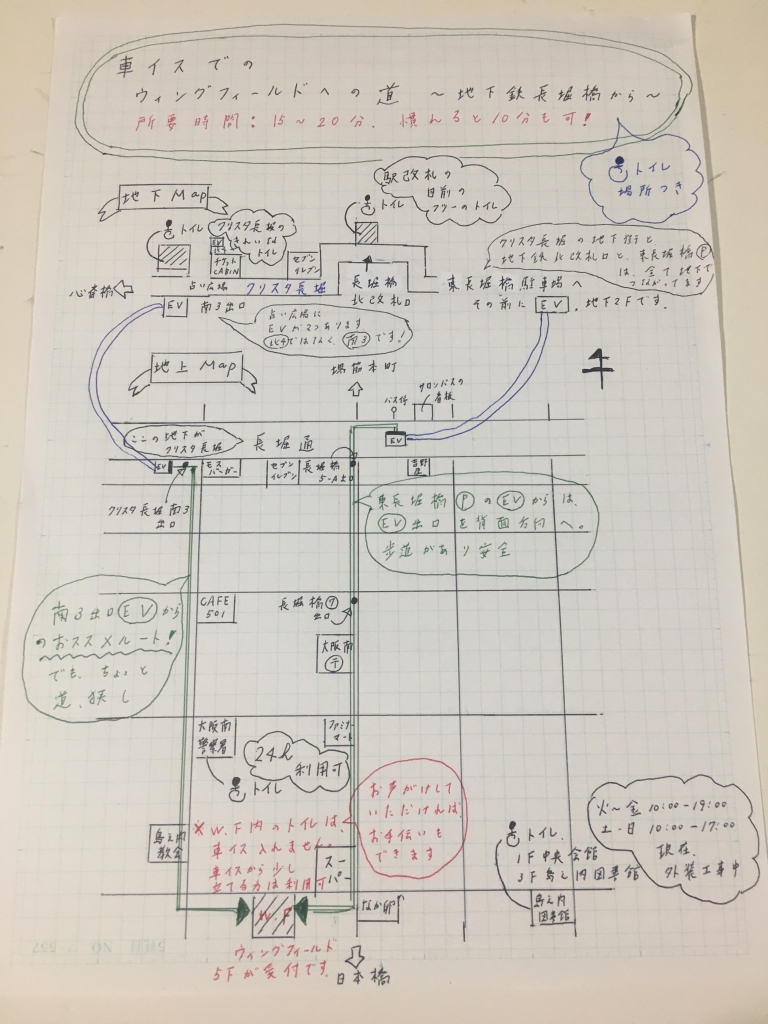 車イスでの
ウィングフィールドへの道 ～地下鉄長堀橋から～
所要時間：15～20分、慣れると10分も可！
トイレ
場所つき
地下Map
トイレ
クリスタ長堀の
きれいな
トイレ
駅改札の
目前の
フリーのトイレ
トイレ
チケット
CABIN
セブン
イレブン
占い広場
クリスタ長堀
心斎橋
EV
南3出口
長堀橋
北改札口
東長堀橋駐車場へ
その前に EV 、地下2Fです。
クリスタ長堀の地下街と
地下鉄北改札口と、東長堀橋Ⓟ
は、全て地下で
つながってます
占い広場に
EVが2つあります
北4ではなく、南3です！
地上Map
堺筋本町
バス停
サロンパスの
看板
ここの地下が
クリスタ長堀
長堀通
EV
EV
モス
バーガー
セブン
イレブン
長堀橋
5-A出口
吉野家
クリスタ長堀南3
出口
東長堀橋Ⓟの EV からは、
EV 出口を背面方向へ。
歩道があり安全
南3出口 EV から
のおススメルート！
でも、ちょっと
道、狭し
CAFE
501
長堀橋⑦
出口
大阪南
〒
大阪南
警察署
ファミリー
マート
24h
利用可
トイレ
お声がけして
いただければ、
お手伝いも
できます
※W.F内のトイレは、
車イス入れません。
車イスから少し
立てる方は利用可
島之内
教会
スーパー
トイレ
1F中央会館
3F島之内図書館
火～金 10:00-19:00
土・日 10:00-17:00
現在、
外装工事中
島之内
図書館
W.F
なか卯
ウィングフィールド
5Fが受付です。
日本橋